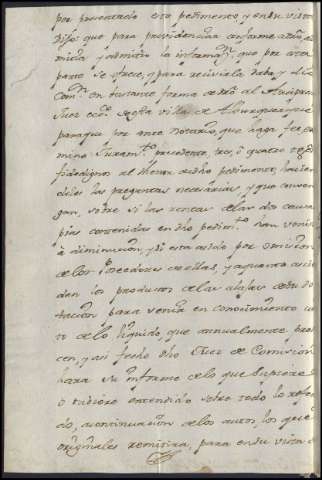 por presentado esta pedimento, y en su vista
Dijo: que para providenciar conforme a
mitia, y admitió la informazn. que por esta
parte se ofrece, y para recivirla daba, y dio
Comn. en bastante forma de dro al Arcipreste
Juez eccô. de esta villa de Alburquerque
para que por ante notario, que haga fee
mino Juramto. precedente, tres, ò quatro tgos
fidedignos al thenor de dicho pedimento, hacien
doles las preguntas necesarias, y que conven
gan, sobre si las rentas de las dos cau
pias contenidas en dho pedimto. han venido
à diminucion, y si esta ha sido por omision
de los Poseedores de ellas, y a quanto ascien
dan los productos de las alajas de su do
tacion para venir en conocimiento
to de lo líquido, que anualmente produ
cen, y asi fecho dho Juez de Comision
hara su informe de lo que supiere
ò tubiere entendido sobre todo lo referi
do, a continuacion de los autos, los que
originales remitira, para en su vista